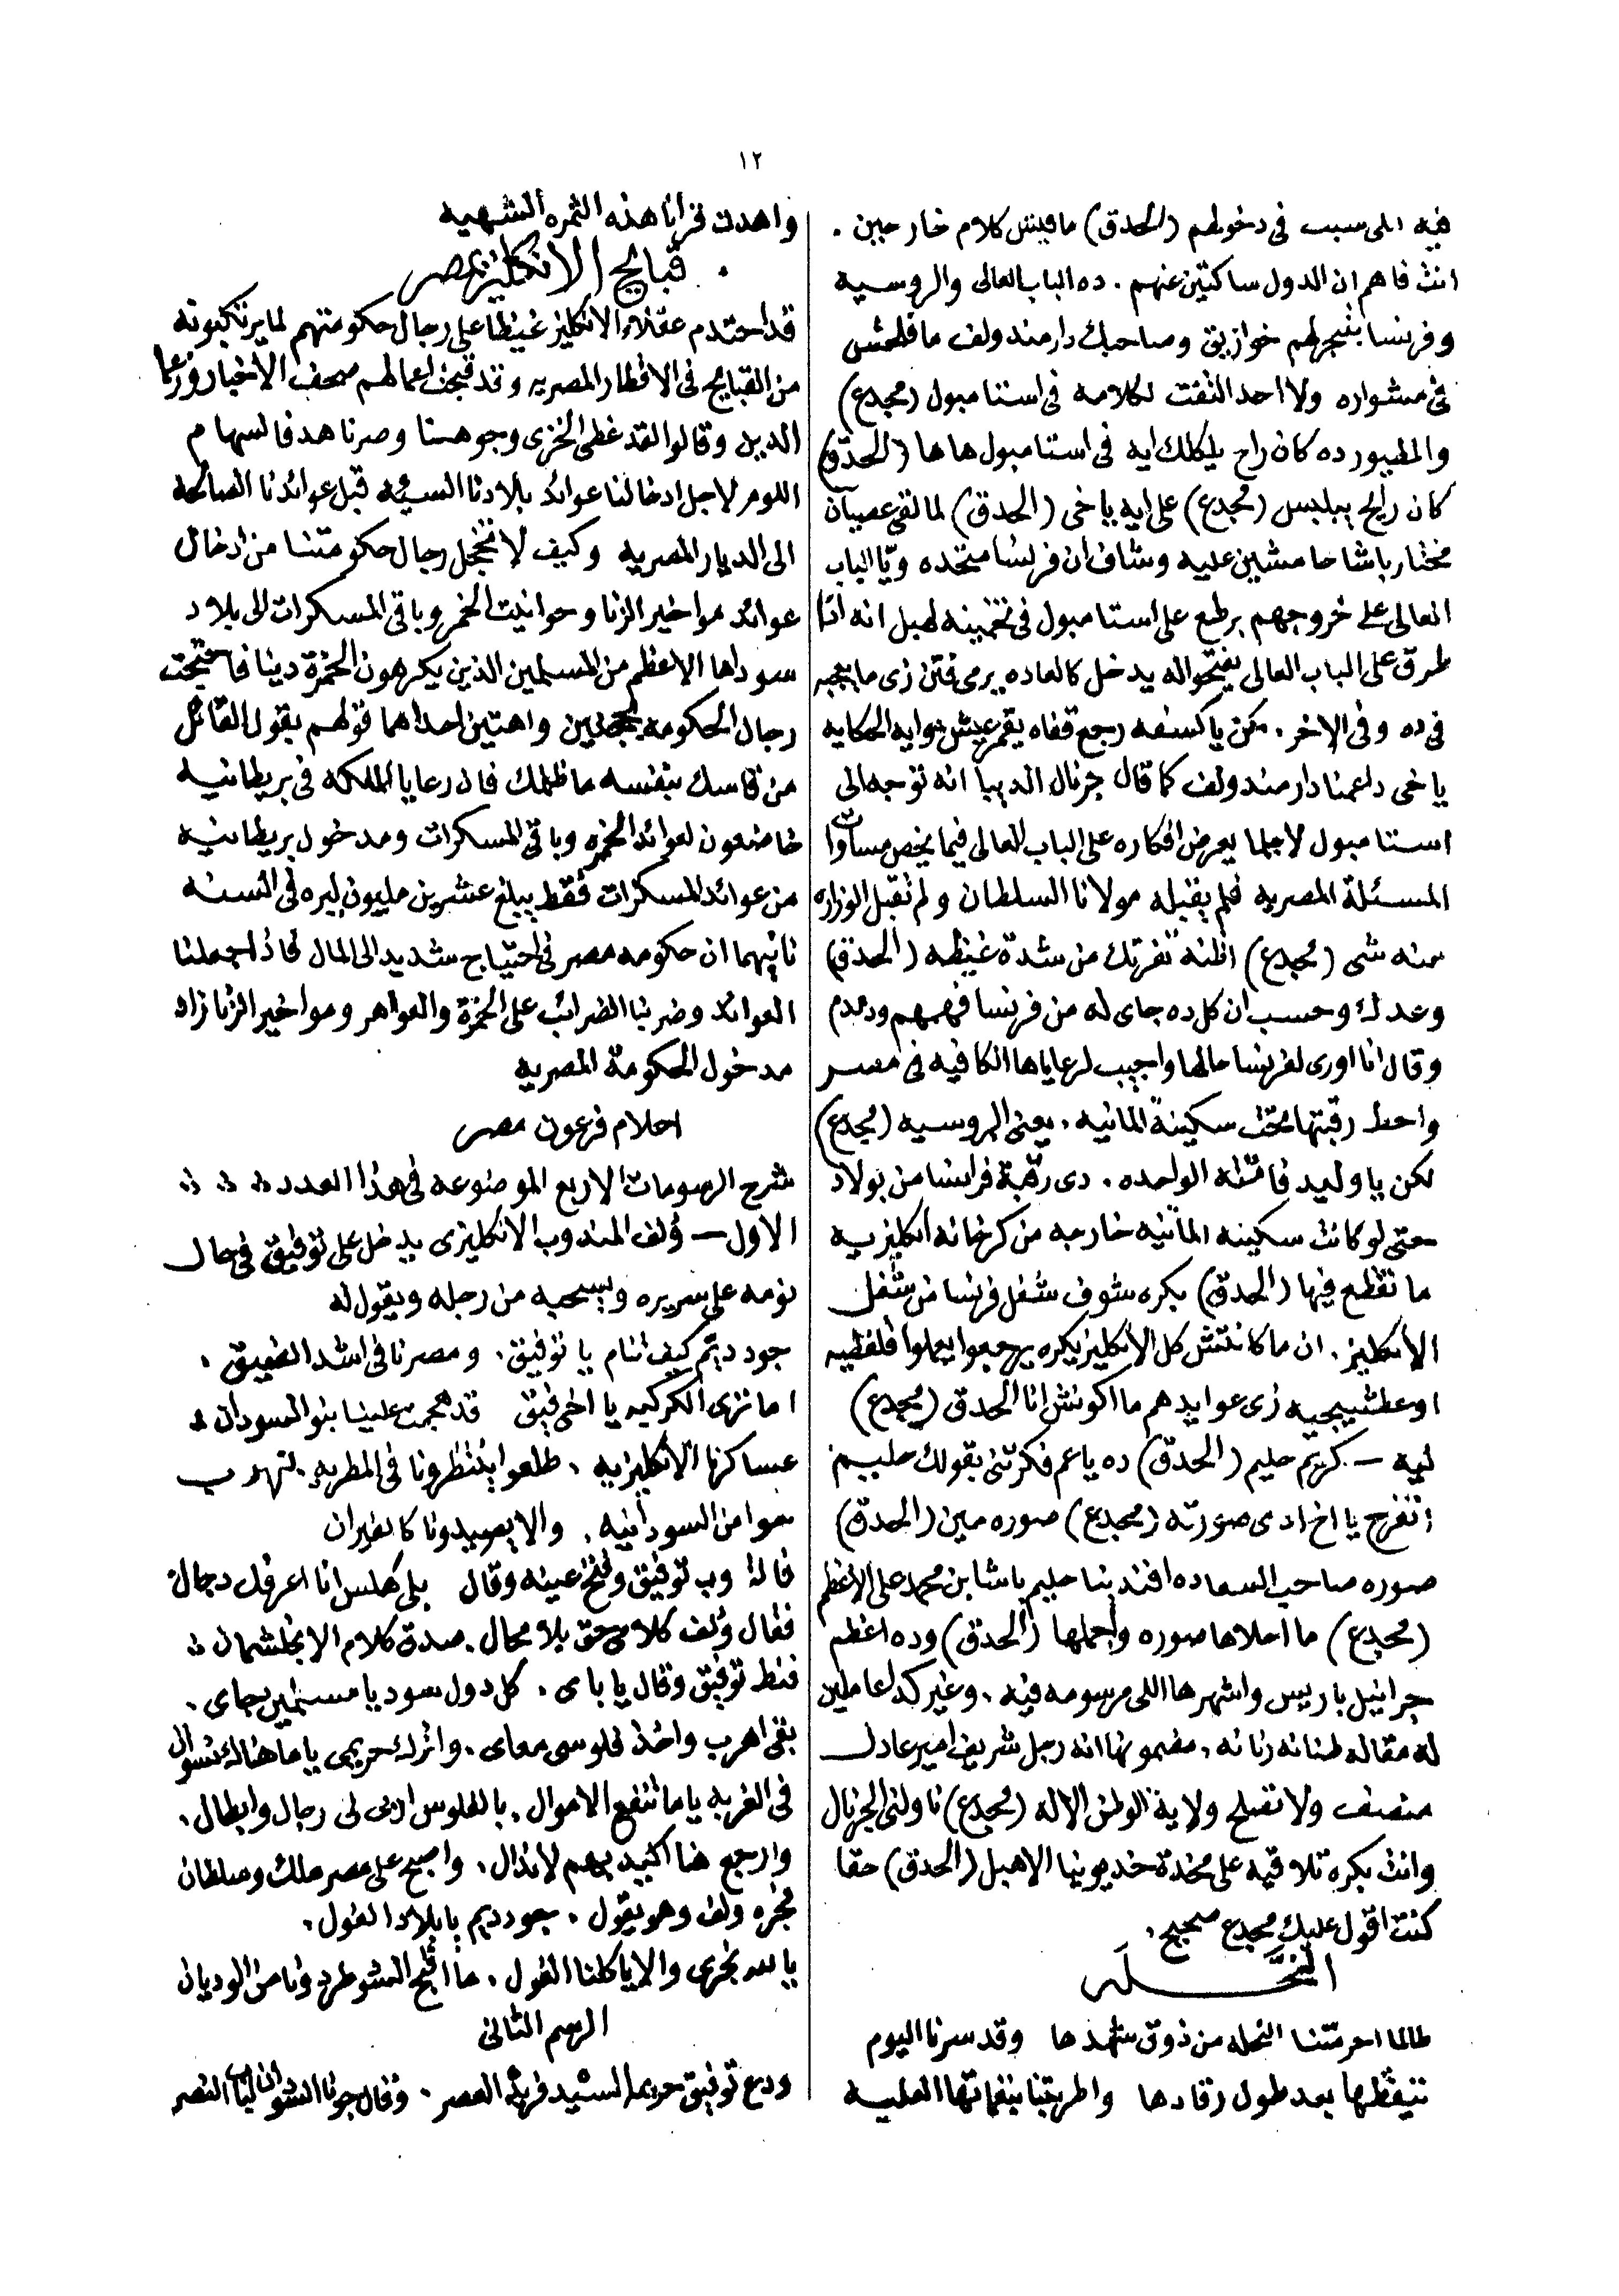 ١٢
فيه اللى سبب فى دخولهم (الحدق) مافيش كلام خارجين .
انت فاهم ان الدول ساكتين عنهم . ده الباب العالى والروسيه
وفرنسا بتنجرلهم خوازيق وصاحبك دارمند ولف مافلحش
فى مشواره ولا احد التفت لكلامه فى استامبول (مجدع)
والطيبور ده كان راح يلكلك ايه فى استامبول هاها (الحدق)
كان رايح يبلبس (مجدع) على ايه ياخى (الحدق) لما لقى عصيان
مختار باشا حامشين عليه وشاف ان فرنسا متحده ويّا الباب
العالى على خروجهم برطع على استامبول فى تخمينه لهبل انه اذا
طرق على الباب العالى يفتحوا له يدخل كالعاده يرمى فتن زى ما يعجبه
فى ده وفى الاخر . مكن ياكسفه رجع قفاه يقمر عيش هوايه الحكايه
ياخى دا عمنا دارمند ولف كما قال جرنال الديبا انه توجه الى
استامبول لاجل ما يعرض افكاره على الباب العالى فيما يخص مساوات
المسئلة المصريه فلم يقبله مولانا السلطان ولم تقبل الوزاره
منه شى (مجدع) اظنه تفرتك من شدة غيظه (الحدق)
وعدك وحسب ان كل ده جاى له من فرنسا فهمهم ودمدم
وقال انا اورى لفرنسا حالها واجيب لرعاياها الكافيه فى مصر
واحط رقبتها تحت سكينة المانيه . يعنى الروسيه (مجدع)
لكن يا وليد فاتته الواحده . دى رقبة فرانسا من بولاد
حتى لو كانت سكينه المانيه خارجه من كرخانه انكليزيه
ما تقطع فيها (الحدق) بكره شوف شغل فرنسا من شغل
الانكليز . ان ما كانتش كل الانكليز بكره يرجعوا يعملوا فلفطيه
او عطشيبجيه زى عوايدهم ما اكونش انا الحدق (مجدع)
ليه — كريم حليم (الحدق) ده ياعم فكرتنى بقولك حليم
اتفرج يا اخ ادى صورته (مجدع) صوره مين (الحدق)
صوره صاحب السعاده افندينا حليم باشا بن محمد على الاعظم
(مجدع) ما احلاها صوره واجملها (الحدق) وده اعظم
جرانيل باريس واشهرها اللى مرسومه فيه . وغير كدا عاملين
له مقاله طنانه رنانه . مضمونها انه رجل شريف امير عادل
منصف ولا تصلح ولاية الوطن الا له (مجدع) ناولنى الجرنال
وانت بكره تلاقيه على مخدة خديوينا الاهبل (الحدق) حقا
كنت اقول عليك مجدع صحيح .
النحـــلـه
طالما احرمتنا النحله من ذوق شهدها وقد سرنا اليوم
تيقظها بعد طول رقادها واطربتنا بنغماتها العليه
واهدت قرانا هذه الثمره الشهيه
. قبايح الانكليز بمصر
قد احتدم عقلاء الانكليز غيظا على رجال حكومتهم لما يرتكبونه
من القبايح فى الاقطار المصريه وقد قبحت اعمالهم صحف الاخبار وزعما
الدين وقالوا لقد غطى الخزى وجوهنا وصرنا هدفا لسهام
اللوم لاجل ادخالنا عوائد بلادنا السيئه قبل عوائدنا الصالحه
الى الديار المصريه وكيف لا تخجل رجال حكومتنا من ادخال
عوائد مواخير الزنا وحوانيت الخمر وباقى المسكرات الى بلاد
سوداها الاعظم من المسلمين الذين يكرهون الخمرة دينا فاحتجت
رجال الحكومه بحجتين واهتين احداهما قولهم بقول القائل
من قاسك بنفسه ما ظلمك فان رعايا الملكه فى بريطانيه
خاضعون لعوائد الخمره وباقى المسكرات ومدخول بريطانيه
من عوائد المسكرات فقط يبلغ عشرين مليون ليره فى السنه
ثانيهما ان حكومه مصر فى احتياج شديد الى المال فاذا جعلنا
العوائد وضربنا الضرائب على الخمرة والعواهر ومواخير الزنا زاد
مدخول الحكومة المصريه
احلام فرعون مصر
شرح الرسومات الاربع الموضوعه فى هذا العدد
الاول — وُلف المندوب الانكليزى يدخل على توفيق فى حال
نومه على سريره ويسحبه من رجله ويقول له
جود ديم كيف تنام يا توفيق . ومصرنا فى اشد الضيق .
اما ترى الكركبه يا اخى فيق قد هجمت علينا بنو السودان
عساكرنا الانكليزيه . طلعوا ينتظرونا فى المطريه . لنهرب
سوا من السودانيه . والا يصيدونا كالفيران
فالتاوب توفيق وفتح عينه وقال بلى هلس انا اعرفك دجال
فقال وُلف كلامى حق بلا محال . صدق كلام الانجلشمان
فنط توفيق وقال ياباى . كل دول سوديا مستنيرجاى .
بقى اهرب واخذ فلوسى معاى . واترك حريمى ياما هناك نسوان
فى الغربه ياما تنفع الاموال . بالفلوس اربى لى رجال وابطال .
وارجع هنا اكيد بهم لانذال . واصبح على مصر ملك وسلطان
فجره ولف وهو يقول . جود ديم يا بلاد الفول .
يالله نجرى والا ياكلنا الغول . ما اقبح الشوطردونا من الوديان
الرسم الثانى
ودع توفيق حريمه السيد فريد العصر . وقال جونا السودانيان القصر